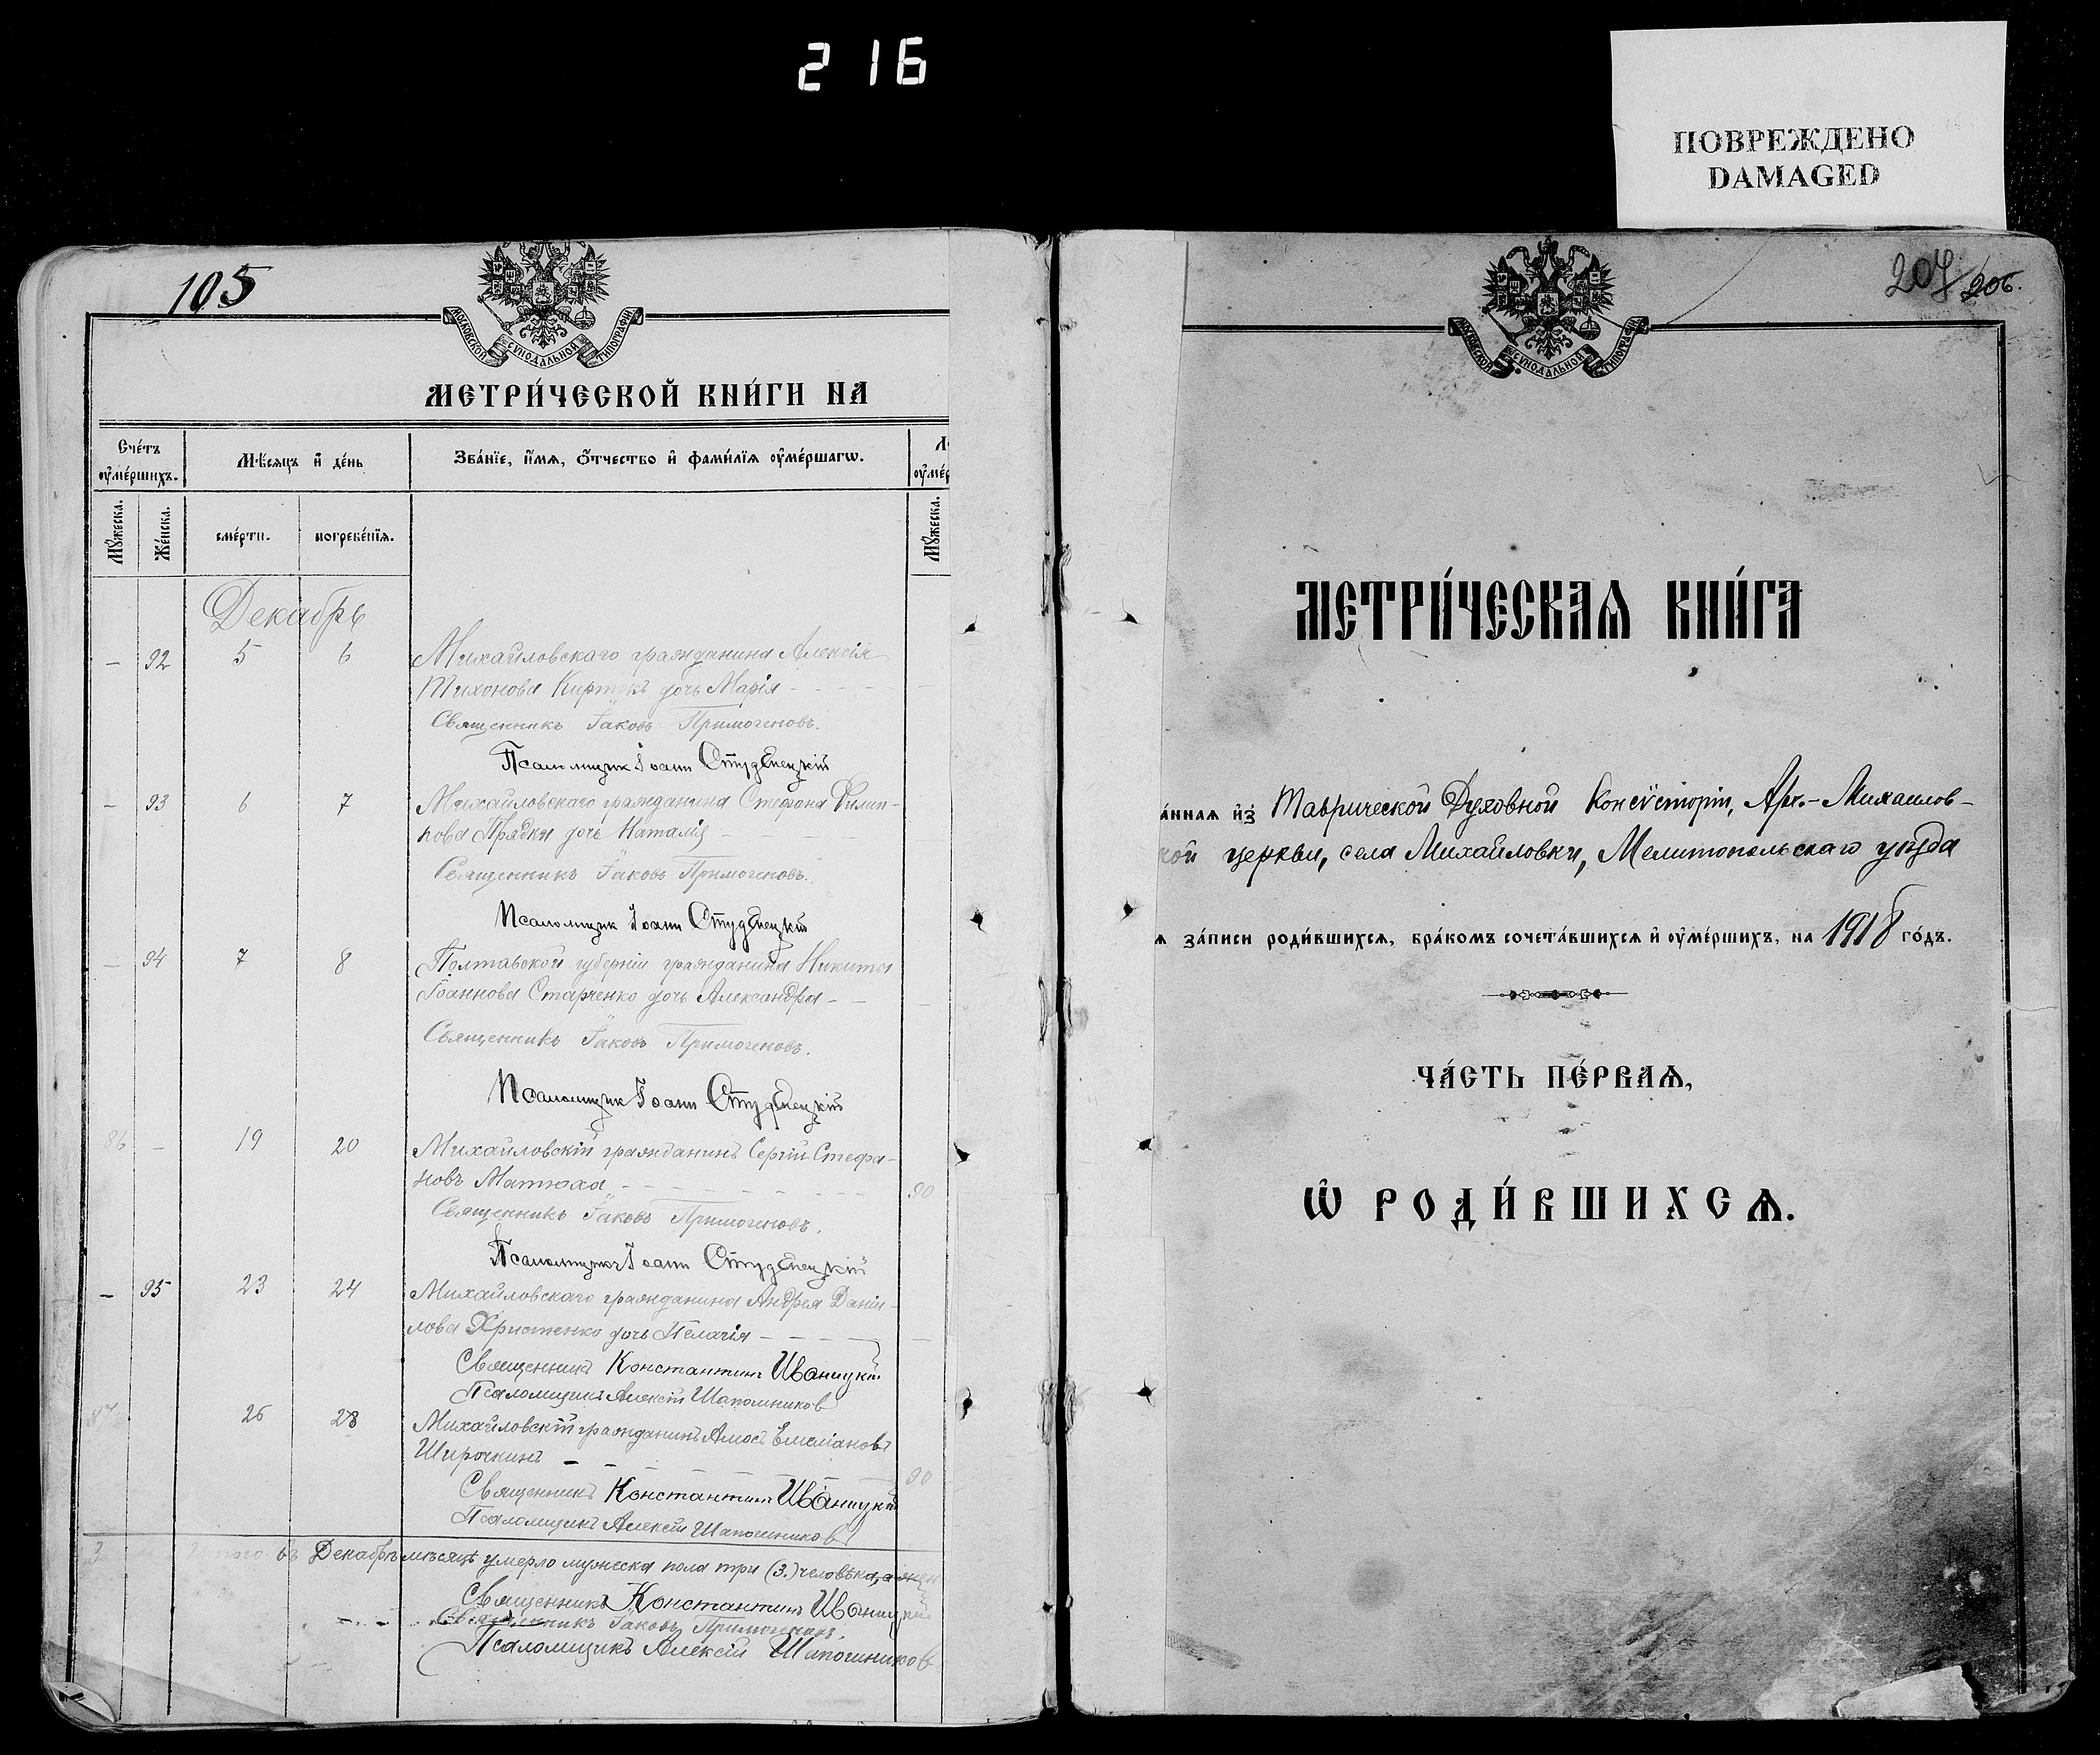 216
ПОВРЕЖДЕНО
DAMAGED
105
МОСКОВСКОЙ СУНОДАЛЬНОЙ ТИПОГРАФІИ
МЕТРИ́ЧЕСКОЙ КНИ́ГИ НА
Сче́тъ оу҆ме́ршихъ.
Мѣ́сяцъ и҆ де́нь
Зва́нїе, и҆́мя, ѻ҆́тчество и҆ фами́лїя оу҆ме́ршагѡ.
Мꙋ́жеска.
Же́нска.
сме́рти.
погребе́нїя.
Мꙋ́жеска.
Декабрь
– 92 5 6 Михайловскаго гражданина Алексія
Тихонова дочь Марія –
Священникъ Іаковъ Примогеновъ.
Псаломщик Іоанн Студенецкій
– 93 6 7 Михайловскаго гражданина Стефана Филип-
пова Прядки дочь Наталія –
Священникъ Іаковъ Примогеновъ.
Псаломщик Іоанн Студенецкій
– 94 7 8 Полтавской губерніи гражданина Никиты
Іоаннова Старченко дочь Александра –
Священникъ Іаковъ Примогеновъ.
Псаломщик Іоанн Студенецкій
86 – 19 20 Михайловскій гражданинъ Сергій Стефа-
новъ Матюха – 90
Священникъ Іаковъ Примогеновъ.
Псаломщикъ Іоанн Студенецкій
– 95 23 24 Михайловскаго гражданина Андрея Даніи-
лова Христенко дочь Пелагія –
Священникъ Константинъ Иваницкій
Псаломщикъ Алексій Шапошников
87 26 28 Михайловскій гражданинъ Амосъ Емеліановъ
Широчкинъ – 90
Священникъ Константинъ Иваницкій
Псаломщикъ Алексій Шапошников
3 Итого въ Декабрѣ мѣсяцѣ умерло мужеска пола три (3.) человѣка, а жен
Священникъ Константинъ Иваницкій
Священникъ Іаковъ Примогеновъ.
Псаломщикъ Алексій Шапошников
207 206.
МОСКОВСКОЙ СУНОДАЛЬНОЙ ТИПОГРАФІИ
МЕТРИ́ЧЕСКАѦ КНИ́ГА
а́нная и҆з Таврической Духовной Консисторіи, Арх.-Михаилов-
кой церкви, села Михайловки, Мелитопольскаго уѣзда
я за́писи роди́вшихся, бра́комъ сочета́вшихся и҆ оу҆ме́ршихъ, на 1918 го́дъ.
ЧА́СТЬ ПЕ́РВАѦ,
Ѡ҆ РОДИ́ВШИХСѦ.